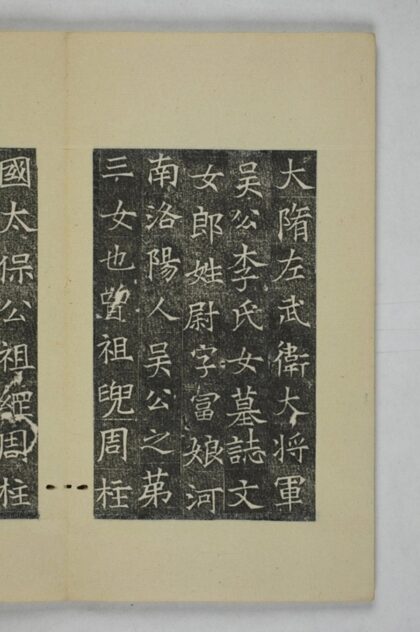 大隋左武衛大將軍
吴公李氏女墓誌文
女郎姓尉字富娘河
南洛陽人吴公之苐
三女也曽祖兜周柱
國太保公祖綱周柱